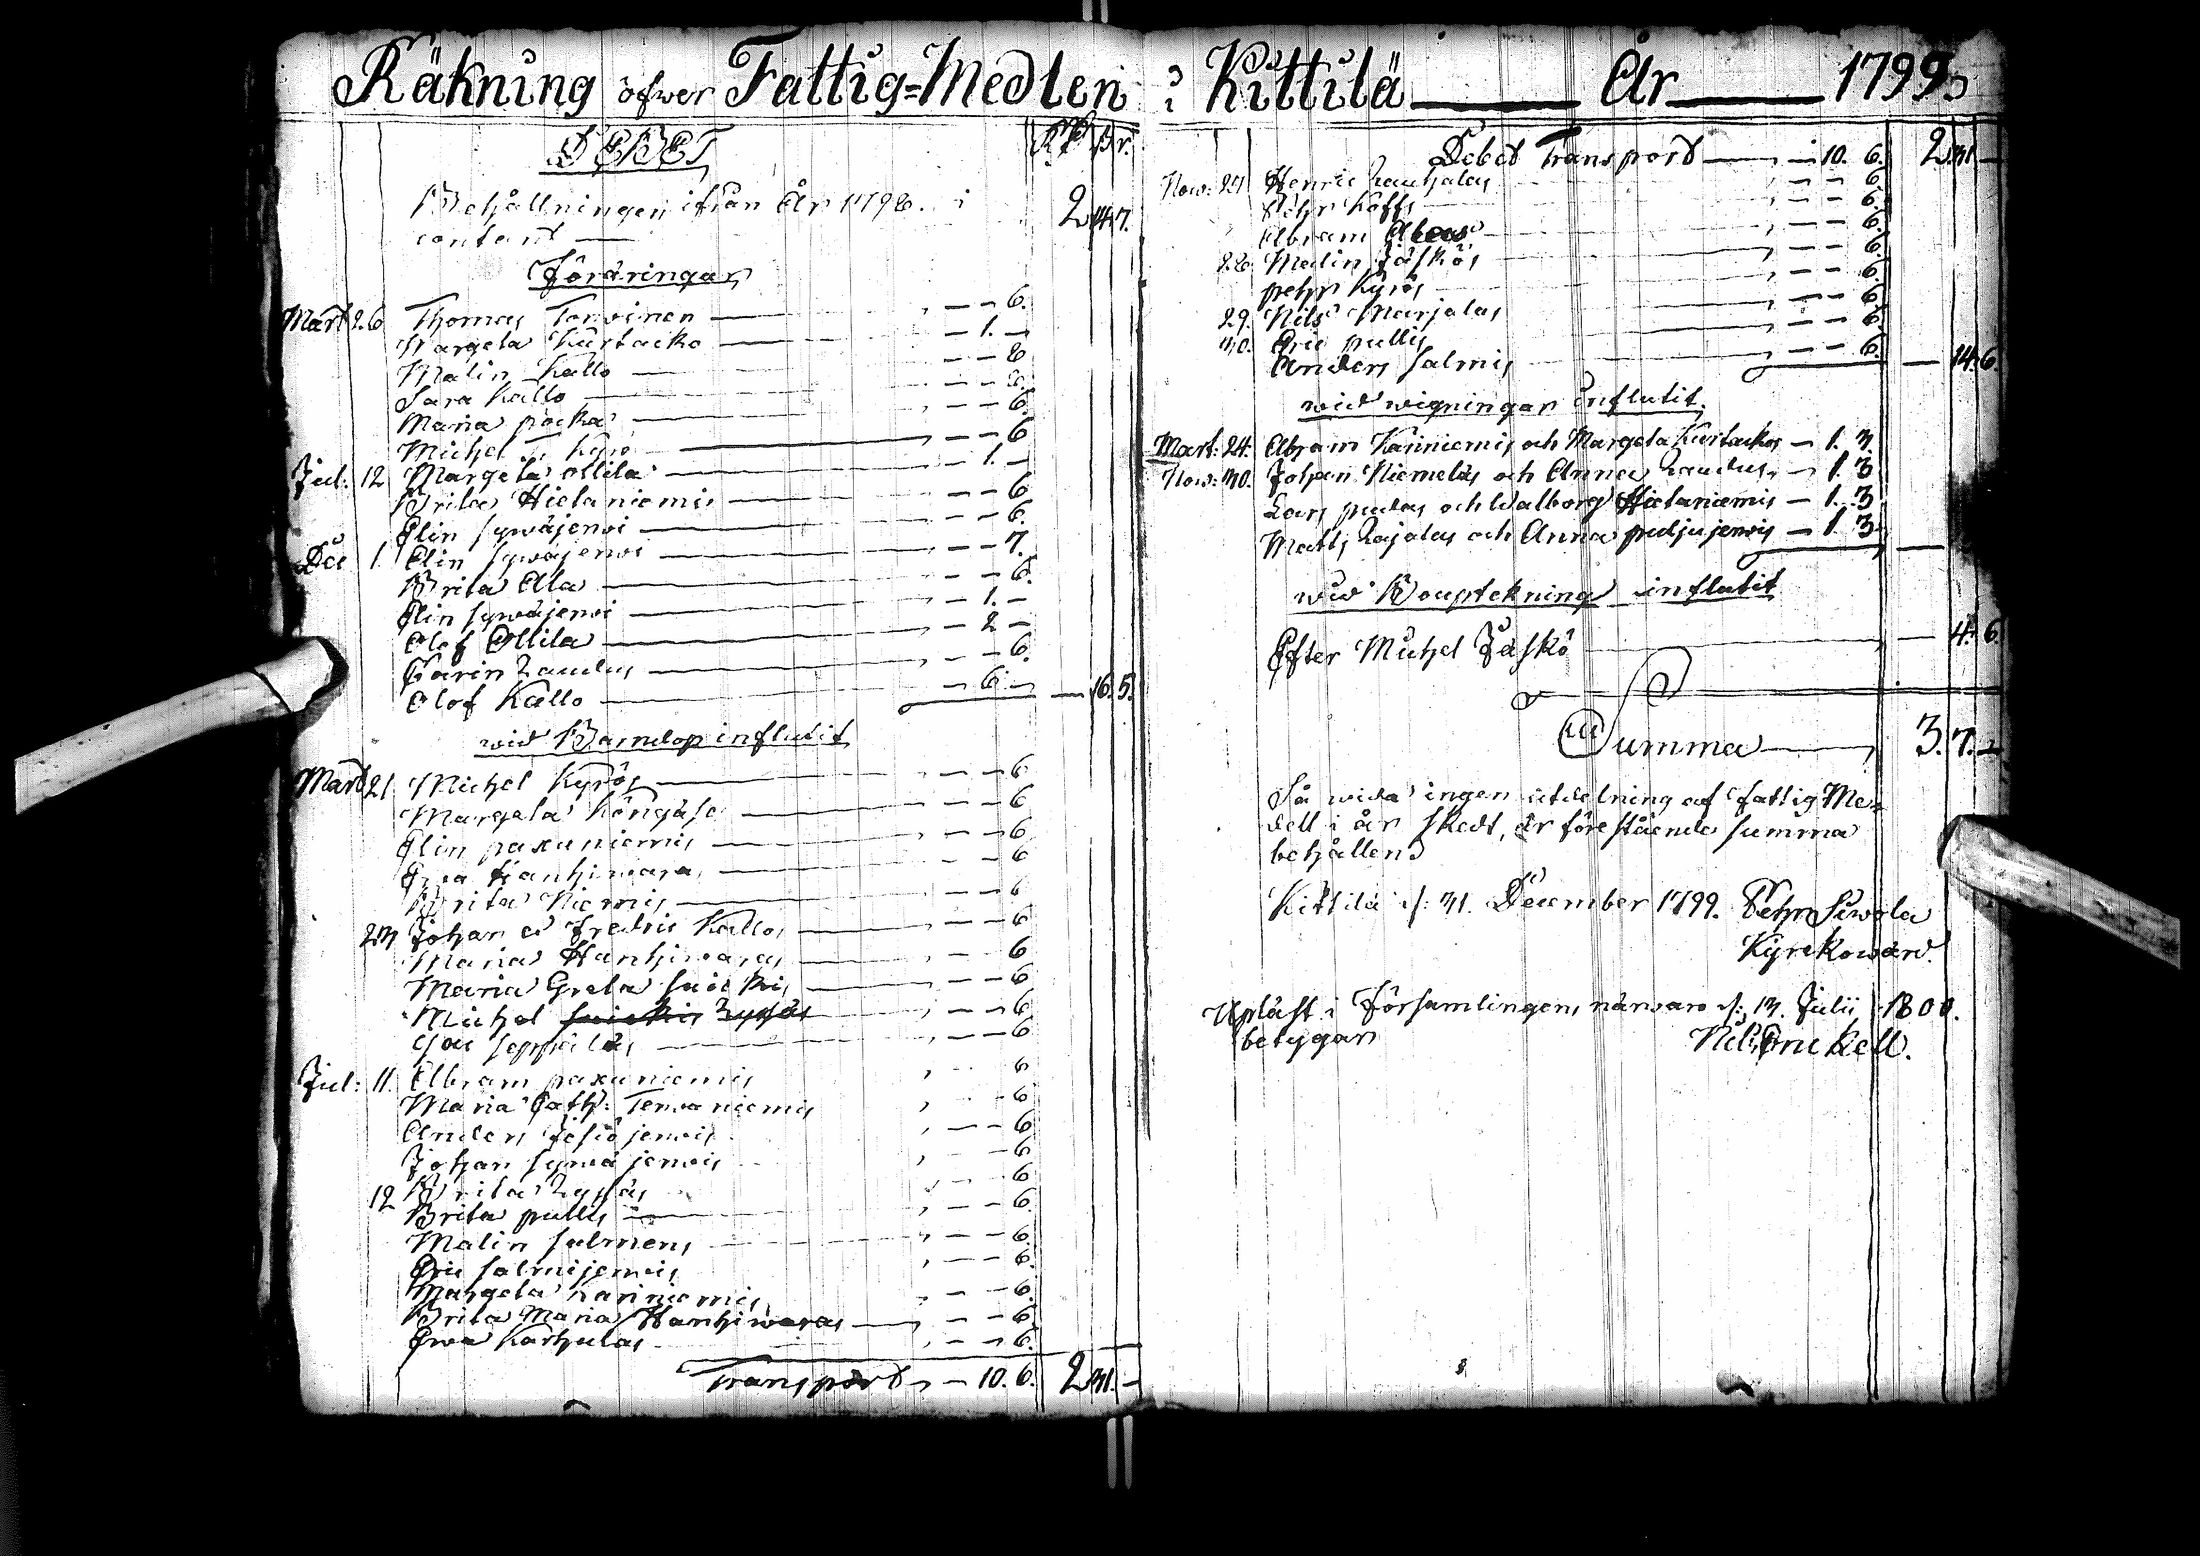 Räkning öfwer Fattig=Medlen i Kittilä — År — 1799
DEBET
Behållningen ifrån År 1798. i 2 14 7.
contant —
Föräringar
Mart 26 Thomas Torvinen — 6.
Margeta Kurtacko — 1. —
Malin Kallo — 8
Sara Kallo — 8.
Maria packa — 6.
Michel — 6
Jul: 12 Margeta Ollila — 1. —
Brita Hietaniemis — 6
Elin syväjerwi — 6.
Dec 1. Elin syväjerwi — 7.
Brita Ella — 6.
Elin syväjerwi — 1. —
Olof Ollila — 2 —
Carin Laudus — 6.
Olof Kallo — 6 — — 16. 5.
wid Barndop influtit
Mart 21 Michel Kyrös — 6
MargetaKöngäs — 6
Elin paxuniemis — 6
Ewa Hanhiwara — 6
Brita Niemis — 6
23 Johan et Fredric Kallos — 6
Maria Hanhiwaras — 6
Maria Greta — 6
Michel — 6
seppäläs — 6
Jul: 11. Abram paxuniemis 6
Maria Cath: Terwaniemis 6
Anders Jesiöjerwis 6
Johan syväjerwis 6
12 Brita 6
Brita pullis — 6
Malin salmens — 6
Eric salmijerwis 6
Margeta Kariniemis 6
Brita Maria Hanhiwaras — 6
Ewa Karhulas — 6.
Transport — 10. 6. 2 31. —
Debet Transport — 10. 6. 2. 31 —
Now: 27 Henric Lauhalas — 6.
Pehr Koffs — 6.
Abram — 6.
28 Malin Jäskös — 6.
pehr Kyrös — 6.
29. Nils Marjalas — 6.
30. Eric pullis — 6.
Anders salmis — 6. — 14. 6.
wid wigningar influtit
Mart: 24. Abram Kariniemis och Margeta Kurtackos — 1. 3.
Now: 30. Johan Niemeläs och Anna Laudus — 1. 3
Lars pudas och Walborg Hietaniemis — 1. 3
Matts Lajalas och Anna puljujerwis — 1. 3
wid Bouptekning influtit
Efter Michel Jäskö — 4. 6
Summa — 3. 7. —
Så wida ingen utdelning af fattig Me=
dell i år skedt, är förestående summa
behållen
Kittilä d: 31. December 1799. Pehr Siwola
Kyrckowärd.
Upläst i Församlingens närwaro d: 13. Julii 1800.
betygar Nils Frickell.